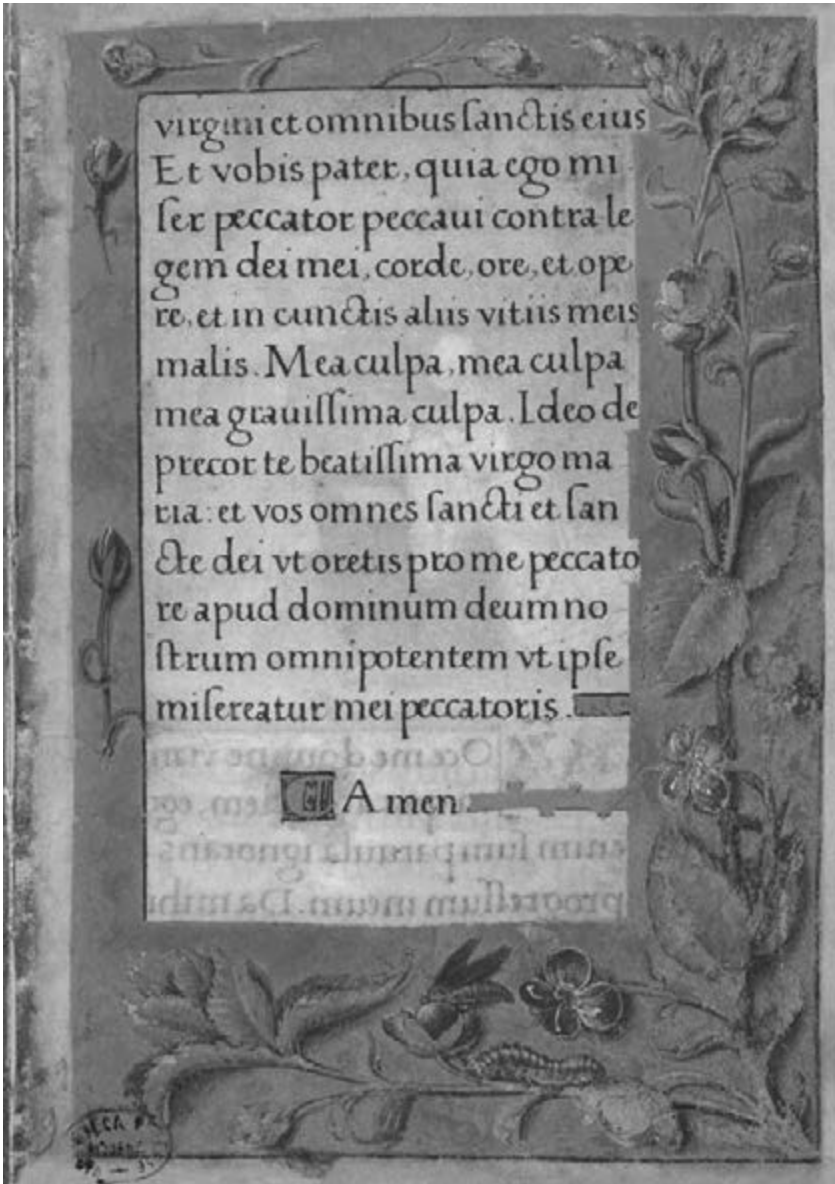 virgini et omnibus sanctis eius
Et vobis pater, quia ego mi
ser peccator peccaui contra le
gem dei mei, corde, ore, et ope
re, et in cunctis aliis vitiis meis
malis. Mea culpa, mea culpa
mea grauissima culpa. Ideo de
precor te beatissima virgo ma
ria: et vos omnes sancti et san
cte dei vt oretis pro me peccato
re apud dominum deum no
strum omnipotentem vt ipse
misereatur mei peccatoris.
Amen